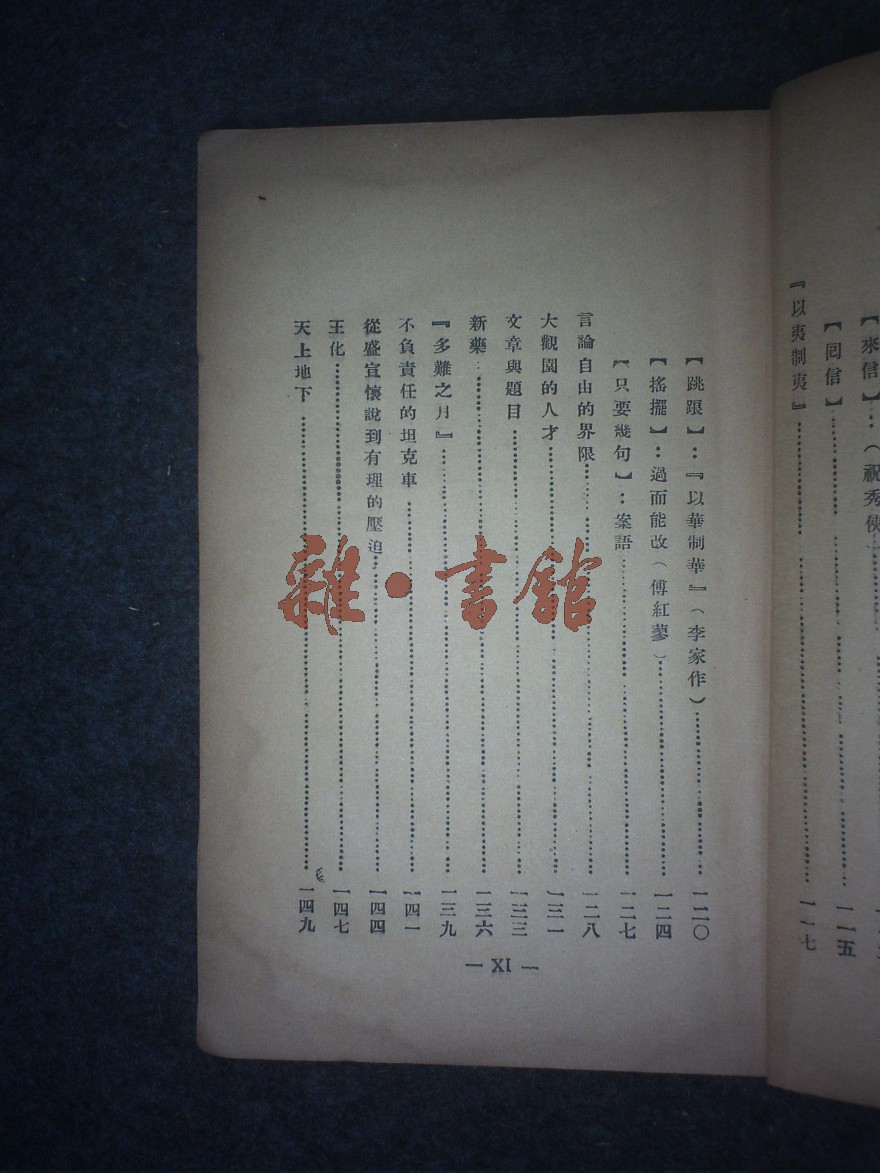 【來信】：（祝秀俠）
【囘信】
一一五
『以夷制夷』
一一七
【跳踉】：『以華制華』（李家作）
一二〇
【搖擺】：過而能改（傅紅蓼）
一二四
【只要幾句】：案語
一二七
言論自由的界限
一二八
大觀園的人才
一三一
文章與題目
一三三
新藥
一三六
『多難之月』
一三九
不負責任的坦克車
一四一
從盛宣懷說到有理的壓迫
一四四
王化
一四七
天上地下
一四九
— XI —
雜·書館